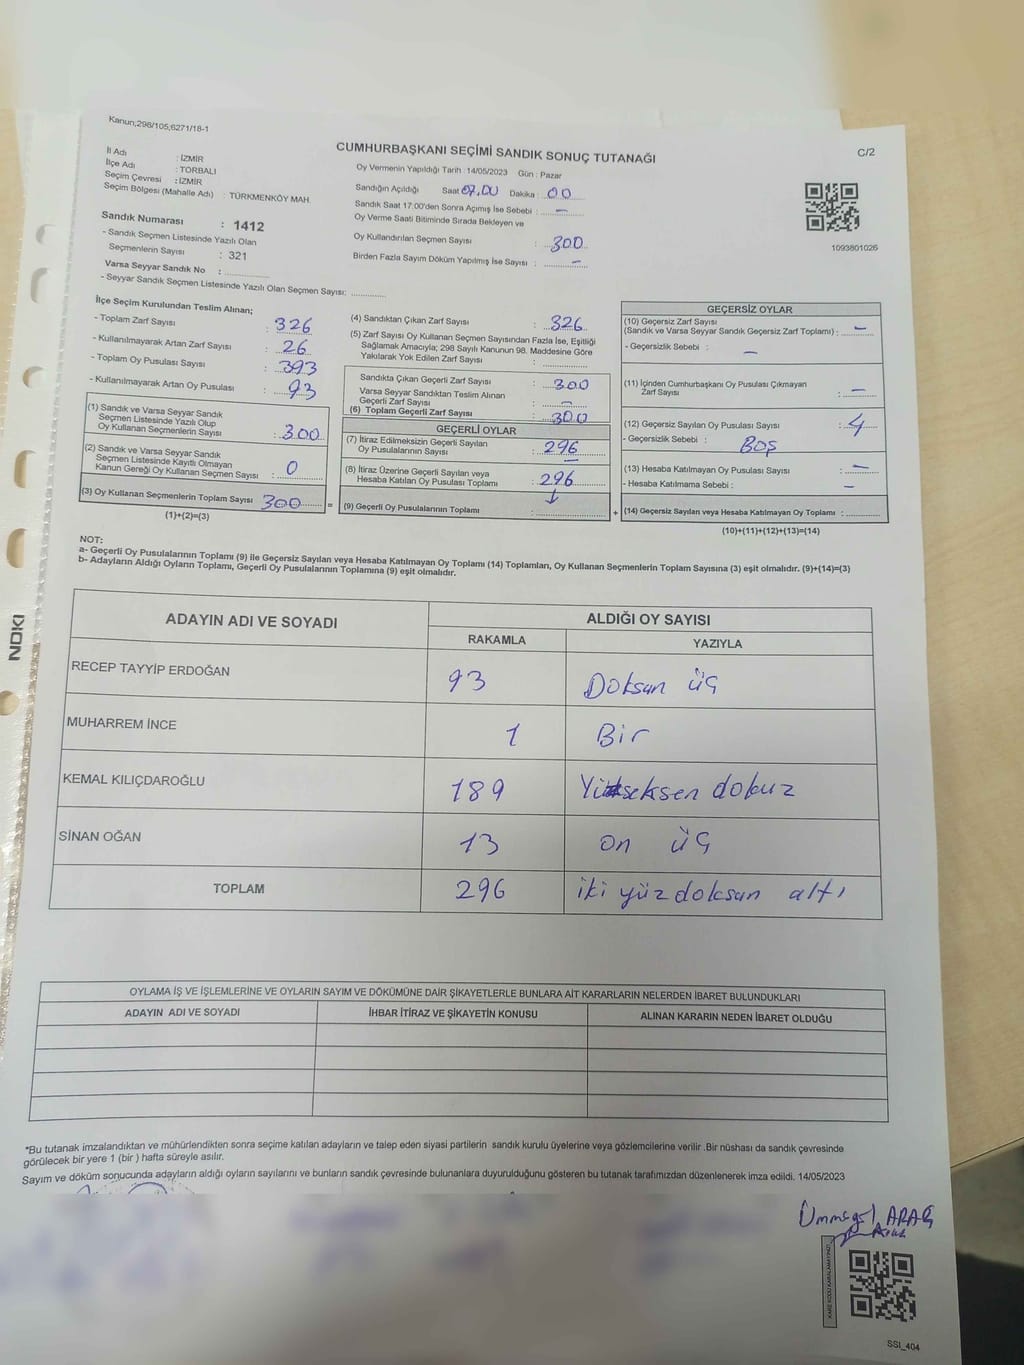 Kanun;298/105;6271/18-1
CUMHURBAŞKANI SEÇİMİ SANDIK SONUÇ TUTANAĞI
C/2
İl Adı : İZMİR
İlçe Adı : TORBALI
Seçim Çevresi : İZMİR
Seçim Bölgesi (Mahalle Adı) : TÜRKMENKÖY MAH.
Sandık Numarası : 1412
- Sandık Seçmen Listesinde Yazılı Olan
Seçmenlerin Sayısı : 321
Varsa Seyyar Sandık No :
- Seyyar Sandık Seçmen Listesinde Yazılı Olan Seçmen Sayısı:
Oy Vermenin Yapıldığı Tarih :14/05/2023 Gün : Pazar
Sandığın Açıldığı Saat 07.00 Dakika : 00
Sandık Saat 17:00'den Sonra Açımış İse Sebebi : —
Oy Verme Saati Bitiminde Sırada Bekleyen ve
Oy Kullandırılan Seçmen Sayısı : 300
Birden Fazla Sayım Döküm Yapılmış İse Sayısı : —
1093801026
İlçe Seçim Kurulundan Teslim Alınan;
- Toplam Zarf Sayısı : 326
- Kullanılmayarak Artan Zarf Sayısı : 26
- Toplam Oy Pusulası Sayısı : 393
- Kullanılmayarak Artan Oy Pusulası : 93
(1) Sandık ve Varsa Seyyar Sandık
Seçmen Listesinde Yazılı Olup
Oy Kullanan Seçmenlerin Sayısı : 300
(2) Sandık ve Varsa Seyyar Sandık
Seçmen Listesinde Kayıtlı Olmayan
Kanun Gereği Oy Kullanan Seçmen Sayısı : 0
(3) Oy Kullanan Seçmenlerin Toplam Sayısı 300 =
(1)+(2)=(3)
(4) Sandıktan Çıkan Zarf Sayısı : 326
(5) Zarf Sayısı Oy Kullanan Seçmen Sayısından Fazla İse, Eşitliği
Sağlamak Amacıyla; 298 Sayılı Kanunun 98. Maddesine Göre
Yakılarak Yok Edilen Zarf Sayısı :
Sandıkta Çıkan Geçerli Zarf Sayısı : 300
Varsa Seyyar Sandıktan Teslim Alınan
Geçerli Zarf Sayısı : —
(6) Toplam Geçerli Zarf Sayısı : 300
GEÇERLİ OYLAR
(7) İtiraz Edilmeksizin Geçerli Sayılan
Oy Pusulasının Sayısı : 296
(8) İtiraz Üzerine Geçerli Sayılan veya
Hesaba Katılan Oy Pusulası Toplamı : 296
(9) Geçerli Oy Pusulalarının Toplamı : +
GEÇERSİZ OYLAR
(10) Geçersiz Zarf Sayısı
(Sandık ve Varsa Seyyar Sandık Geçersiz Zarf Toplamı) : —
- Geçersizlik Sebebi : —
(11) İçinden Cumhurbaşkanı Oy Pusulası Çıkmayan
Zarf Sayısı : —
(12) Geçersiz Sayılan Oy Pusulası Sayısı : 4
- Geçersizlik Sebebi : BOŞ
(13) Hesaba Katılmayan Oy Pusulası Sayısı : —
- Hesaba Katılmama Sebebi : —
(14) Geçersiz Sayılan veya Hesaba Katılmayan Oy Toplamı :
(10)+(11)+(12)+(13)=(14)
NOT:
a- Geçerli Oy Pusulalarının Toplamı (9) ile Geçersiz Sayılan veya Hesaba Katılmayan Oy Toplamı (14) Toplamları, Oy Kullanan Seçmenlerin Toplam Sayısına (3) eşit olmalıdır. (9)+(14)=(3)
b- Adayların Aldığı Oyların Toplamı, Geçerli Oy Pusulalarının Toplamına (9) eşit olmalıdır.
NOKI
ADAYIN ADI VE SOYADI ALDIĞI OY SAYISI
RAKAMLA YAZIYLA
RECEP TAYYİP ERDOĞAN 93 Doksan üç
MUHARREM İNCE 1 Bir
KEMAL KILIÇDAROĞLU 189 seksen dokuz
SİNAN OĞAN 13 on üç
TOPLAM 296 iki yüz doksan altı
OYLAMA İŞ VE İŞLEMLERİNE VE OYLARIN SAYIM VE DÖKÜMÜNE DAİR ŞİKAYETLERLE BUNLARA AİT KARARLARIN NELERDEN İBARET BULUNDUKLARI
ADAYIN ADI VE SOYADI İHBAR İTİRAZ VE ŞİKAYETİN KONUSU ALINAN KARARIN NEDEN İBARET OLDUĞU
*Bu tutanak imzalandıktan ve mühürlendikten sonra seçime katılan adayların ve talep eden siyasi partilerin sandık kurulu üyelerine veya gözlemcilerine verilir .Bir nüshası da sandık çevresinde
görülecek bir yere 1 (bir ) hafta süreyle asılır.
Sayım ve döküm sonucunda adayların aldığı oyların sayılarını ve bunların sandık çevresinde bulunanlara duyurulduğunu gösteren bu tutanak tarafımızdan düzenlenerek imza edildi. 14/05/2023
KARE KODU KARALAMAYINIZ!
SSI_404